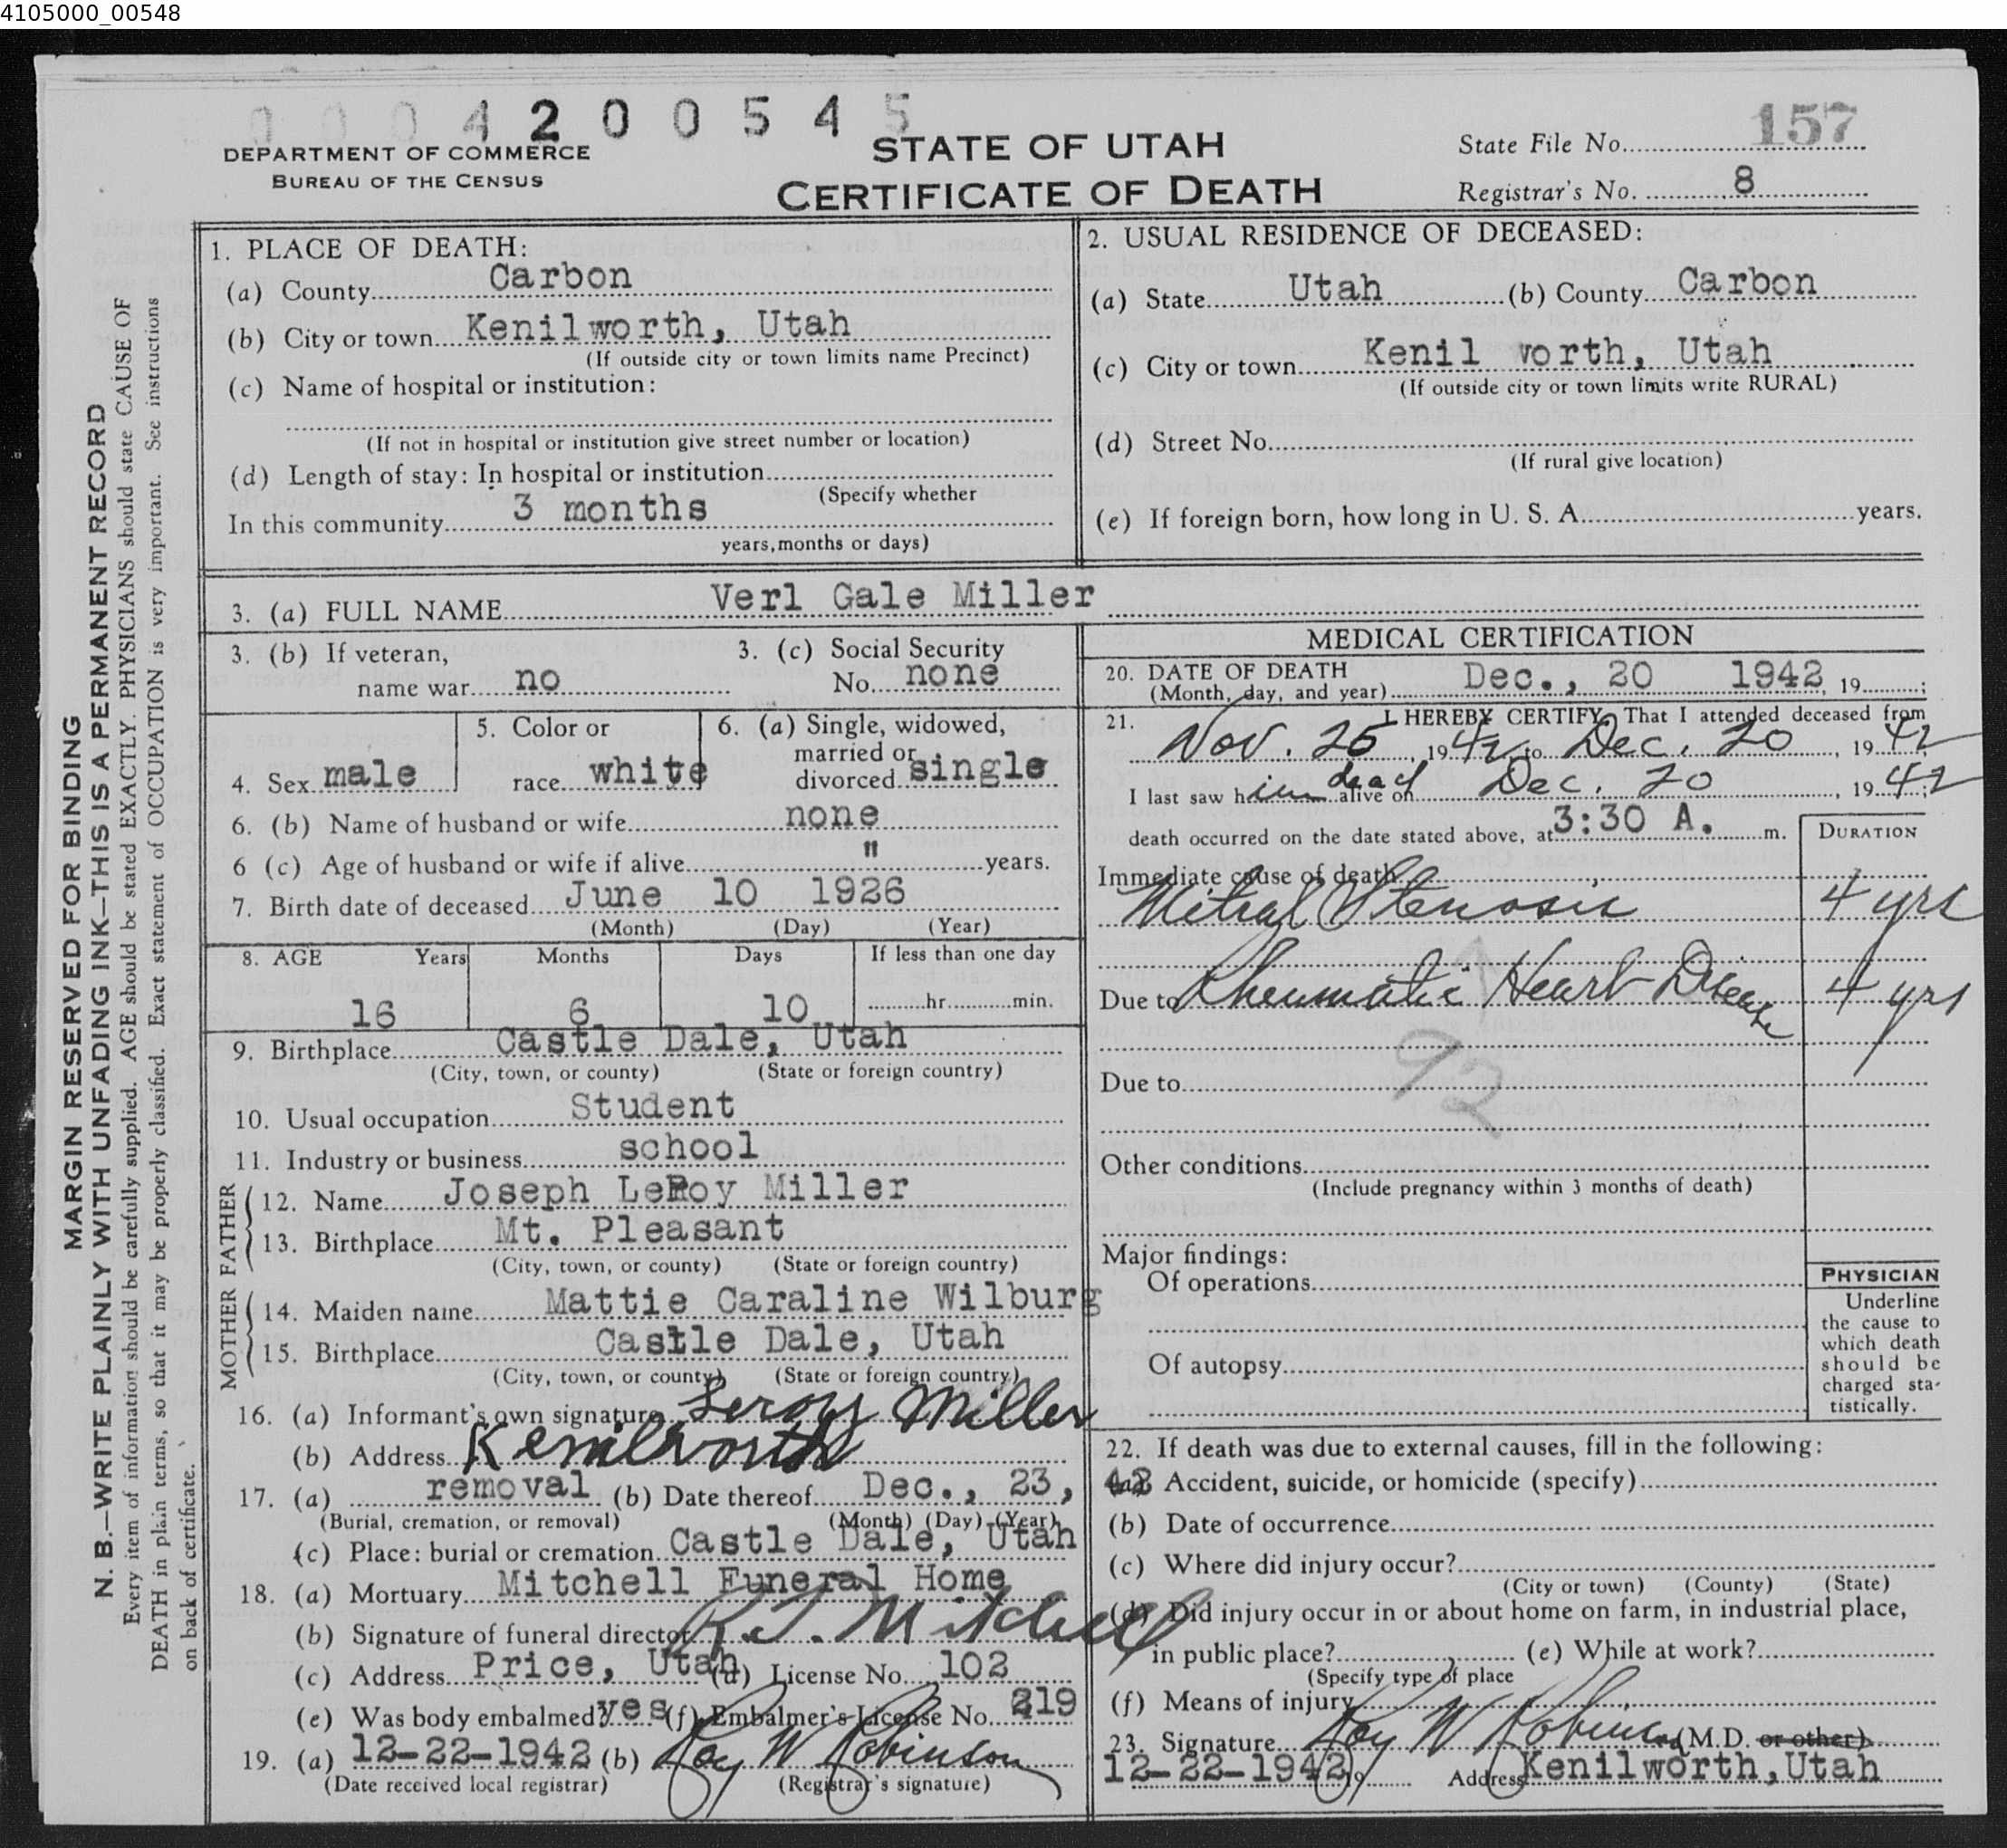 4105000_00548
0004200545
157
DEPARTMENT OF COMMERCE
BUREAU OF THE CENSUS
STATE OF UTAH
CERTIFICATE OF DEATH
State File No.
Registrar's No. 8
MARGIN RESERVED FOR BINDING
N. B.—WRITE PLAINLY WITH UNFADING INK—THIS IS A PERMANENT RECORD
Every item of information should be carefully supplied. AGE should be stated EXACTLY. PHYSICIANS should state CAUSE OF
DEATH in plain terms, so that it may be properly classified. Exact statement of OCCUPATION is very important. See instructions
on back of certificate.
1. PLACE OF DEATH:
(a) County Carbon
(b) City or town Kenilworth, Utah
(If outside city or town limits name Precinct)
(c) Name of hospital or institution:
(If not in hospital or institution give street number or location)
(d) Length of stay: In hospital or institution
(Specify whether
In this community 3 months
years, months or days)
2. USUAL RESIDENCE OF DECEASED:
(a) State Utah (b) County Carbon
(c) City or town Kenil worth, Utah
(If outside city or town limits write RURAL)
(d) Street No.
(If rural give location)
(e) If foreign born, how long in U. S. A. years.
3. (a) FULL NAME Verl Gale Miller
3. (b) If veteran,
name war no
3. (c) Social Security
No. none
4. Sex male
5. Color or
race white
6. (a) Single, widowed,
married or
divorced single
6. (b) Name of husband or wife none
6 (c) Age of husband or wife if alive " years.
7. Birth date of deceased June 10 1926
(Month) (Day) (Year)
8. AGE Years Months Days If less than one day
16 6 10 hr. min.
9. Birthplace Castle Dale, Utah
(City, town, or county) (State or foreign country)
10. Usual occupation Student
11. Industry or business school
FATHER
12. Name Joseph LeRoy Miller
13. Birthplace Mt. Pleasant
(City, town, or county) (State or foreign country)
MOTHER
14. Maiden name Mattie Caraline Wilburg
15. Birthplace Castle Dale, Utah
(City, town, or county) (State or foreign country)
16. (a) Informant's own signature Leroy Miller
(b) Address Kenilworth
17. (a) removal (b) Date thereof Dec., 23, 42
(Burial, cremation, or removal) (Month) (Day) (Year)
(c) Place: burial or cremation Castle Dale, Utah
18. (a) Mortuary Mitchell Funeral Home
(b) Signature of funeral director R. J. Mitchell
(c) Address Price, Utah (d) License No. 102
(e) Was body embalmed? yes (f) Embalmer's License No. 219
19. (a) 12-22-1942 (b) Roy W Robinson
(Date received local registrar) (Registrar's signature)
MEDICAL CERTIFICATION
20. DATE OF DEATH
(Month, day, and year) Dec., 20 1942, 19 ;
21. I HEREBY CERTIFY, That I attended deceased from
Nov. 25, 1942 to Dec. 20, 1942
I last saw him dead alive on Dec. 20, 1942;
death occurred on the date stated above, at 3:30 A. m.
DURATION
Immediate cause of death
Mitral Stenosis 4 yrs
Due to Rheumatic Heart Disease 4 yrs
92
Due to
Other conditions
(Include pregnancy within 3 months of death)
Major findings:
Of operations
Of autopsy
PHYSICIAN
Underline
the cause to
which death
should be
charged sta-
tistically.
22. If death was due to external causes, fill in the following:
(a) Accident, suicide, or homicide (specify)
(b) Date of occurrence
(c) Where did injury occur?
(City or town) (County) (State)
(d) Did injury occur in or about home on farm, in industrial place,
in public place? (e) While at work?
(Specify type of place
(f) Means of injury
23. Signature Roy W Robinson (M.D. or other)
12-22-1942 19 Address Kenilworth, Utah